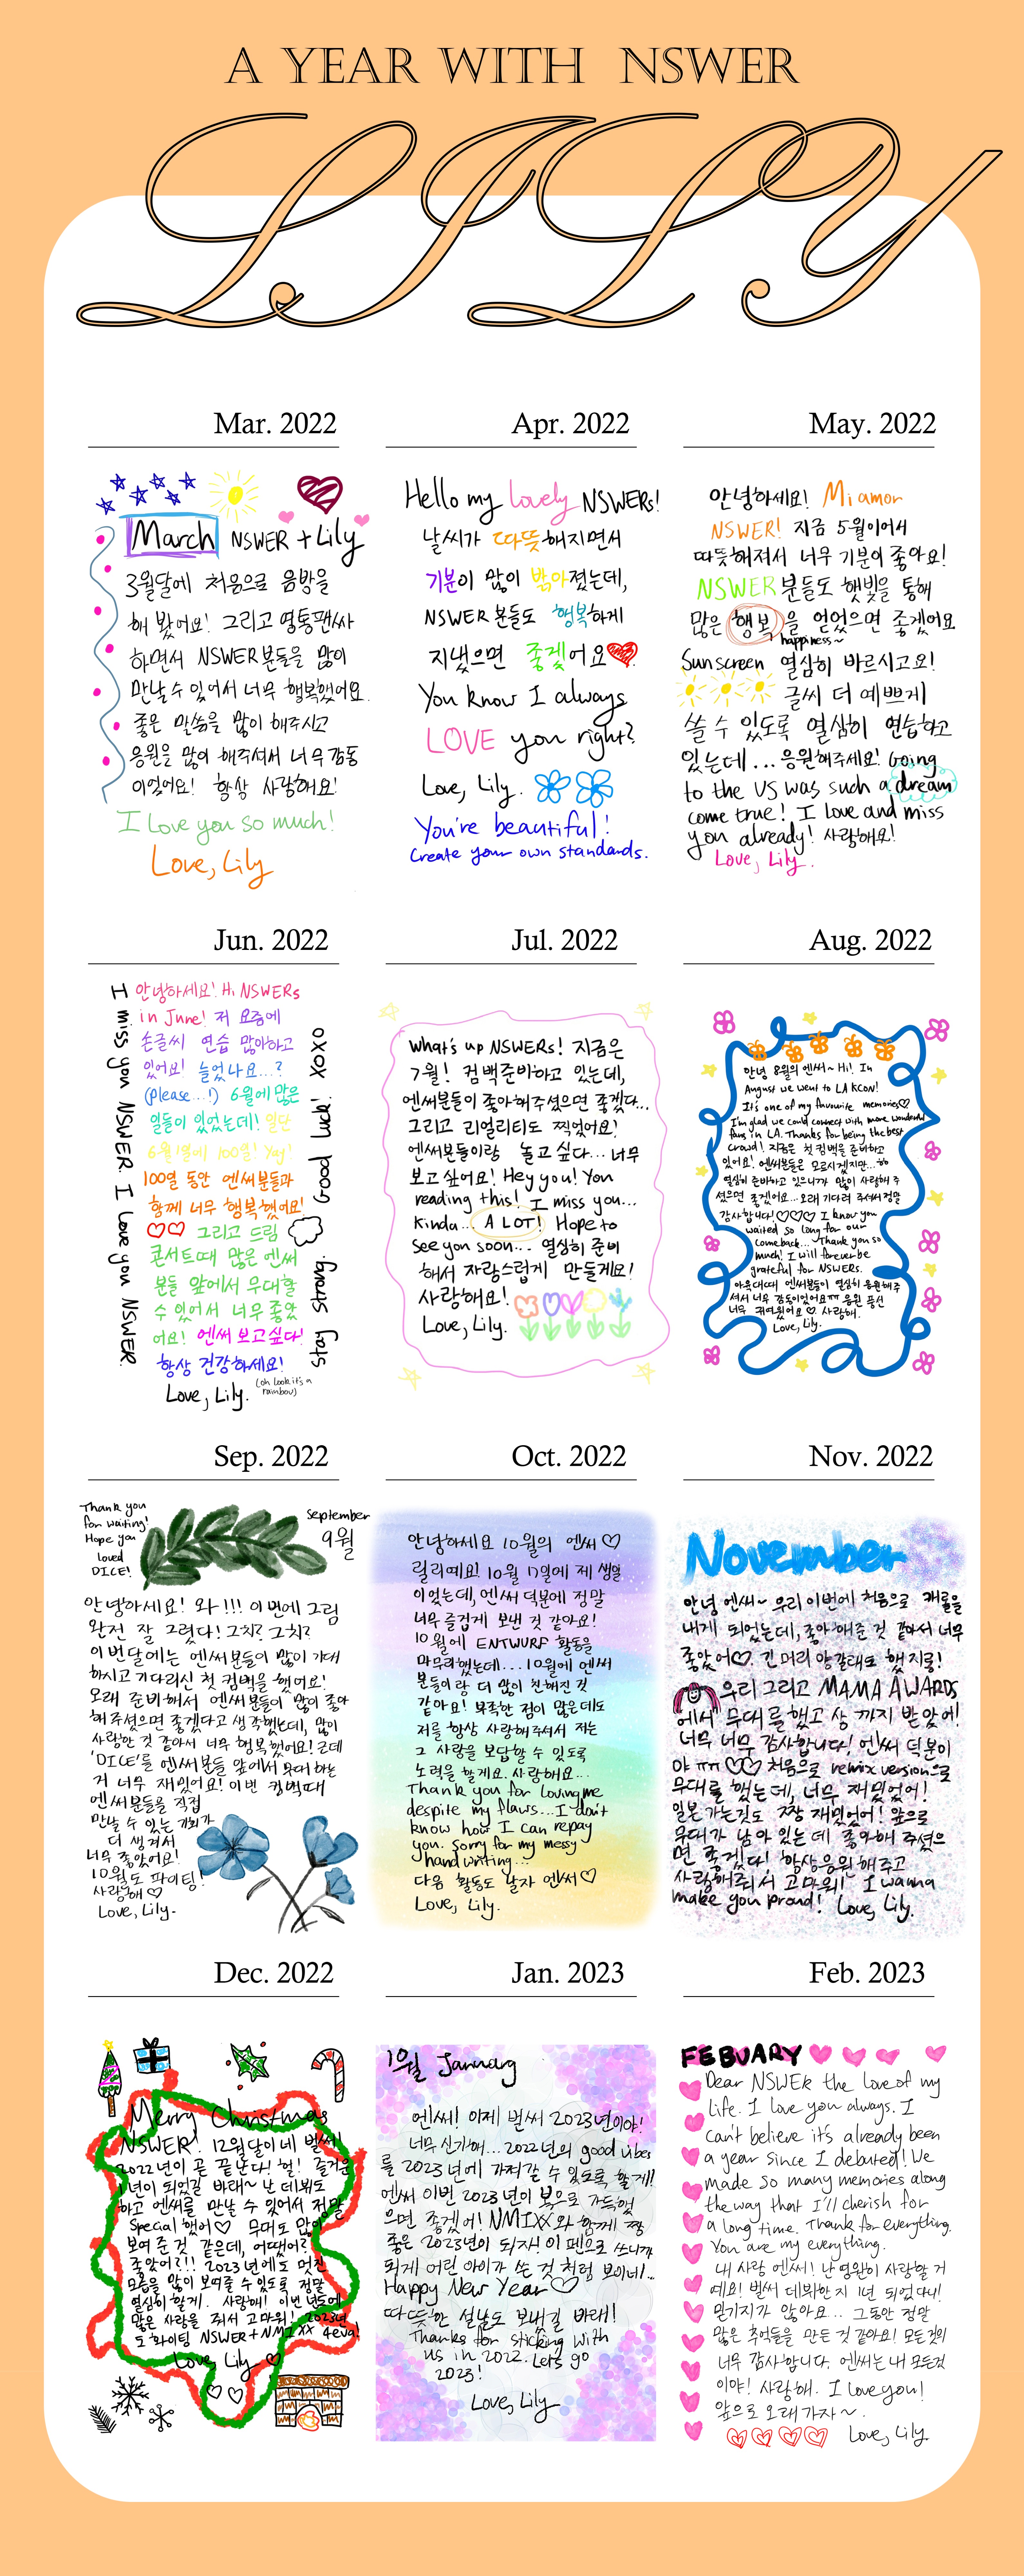 A YEAR WITH NSWER
LILY
Mar. 2022
March NSWER + Lily
3월달에 처음으로 음방을
해 봤어요! 그리고 영통팬싸
하면서 NSWER분들을 많이
만날 수 있어서 너무 행복했어요.
좋은 말씀을 많이 해주시고
응원을 많이 해주셔서 너무 감동
이었어요! 항상 사랑해요!
I love you so much!
Love, Lily
Apr. 2022
Hello my lovely NSWERs!
날씨가 따뜻해지면서
기분이 많이 밝아졌는데,
NSWER 분들도 행복하게
지냈으면 좋겠어요
You know I always
LOVE you right?
Love, Lily.
You're beautiful!
Create your own standards.
May. 2022
안녕하세요! Mi amor
NSWER! 지금 5월이어서
따뜻해져서 너무 기분이 좋아요!
NSWER분들도 햇빛을 통해
많은 행복을 얻었으면 좋겠어요
happiness~
Sunscreen 열심히 바르시고요!
글씨 더 예쁘게
쓸 수 있도록 열심히 연습하고
있는데... 응원해주세요! Going
to the US was such a dream
come true! I love and miss
you already! 사랑해요!
Love, Lily.
Jun. 2022
I miss you NSWER I love you NSWER.
안녕하세요! Hi NSWERs
in June! 저 요즘에
손글씨 연습 많이하고
있어요! 늘었나요...?
(please...!) 6월에 많은
일들이 있었는데! 일단
6월 1일에 100일! Yay!
100일 동안 엔써분들과
함께 너무 행복했어요!
그리고 드림
콘서트때 많은 엔써
분들 앞에서 무대할
수 있어서 너무 좋았
어요! 엔써 보고싶다!
항상 건강하세요!
Love, Lily.
(oh look it's a
rainbow)
Stay strong. Good luck! XOXO
Jul. 2022
What's up NSWERs! 지금은
7월! 컴백준비하고 있는데,
엔써분들이 좋아해주셨으면 좋겠다...
그리고 리얼리티도 찍었어요!
엔써분들이랑 놀고 싶다... 너무
보고 싶어요! Hey you! You
reading this! I miss you...
kinda... A LOT! Hope to
see you soon... 열심히 준비
해서 자랑스럽게 만들게요!
사랑해요!
Love, Lily.
Aug. 2022
안녕 8월의 엔써~ Hi! In
August we went to LA KCON!
It's one of my favourite memories♡
I'm glad we could connect with more wonderful
fans in LA. Thanks for being the best
crowd! 지금은 첫 컴백을 준비하고
있어요! 엔써분들은 모르시겠지만...
열심히 준비하고 있으니까 많이 사랑해 주
셨으면 좋겠어요... 오래 기다려 주셔서 정말
감사합니다!♡♡♡ I know you
waited so long for our
comeback... Thank you so
much! I will forever be
grateful for NSWERS.
엔써분들이 열심히 응원해주
셔서 너무 감동이었어요ㅠㅠ 응원 풍선
너무 귀여웠어요♡ 사랑해.
Love, Lily.
Sep. 2022
Thank you
for waiting!
Hope you
loved
DICE!
September
9월
안녕하세요! 와!!! 이번에 그림
완전 잘 그렸다! 그치? 그치?
이번달에는 엔써분들이 많이 기대
하시고 기다리신 첫 컴백을 했어요!
오래 준비해서 엔써분들이 많이 좋아
해주셨으면 좋겠다고 생각했는데, 많이
사랑한 것 같아서 너무 행복했어요! 근데
'DICE'를 엔써분들 앞에서 무대 하는
거 너무 재밌어요! 이번 컴백때
엔써분들을 직접
만날 수 있는 기회가
더 생겨서
너무 좋았어요!
10월도 파이팅!
사랑해♡
Love, Lily-
Oct. 2022
안녕하세요 10월의 엔써♡
릴리예요! 10월 17일에 제 생일
이었는데, 엔써 덕분에 정말
너무 즐겁게 보낸 것 같아요!
10월에 ENTWURF 활동을
마무리했는데... 10월에 엔써
분들이랑 더 많이 친해진 것
같아요! 부족한 점이 많은데도
저를 항상 사랑해주셔서 저는
그 사랑을 보답할 수 있도록
노력을 할게요. 사랑해요...
Thank you for loving me
despite my flaws... I don't
know how I can repay
you. Sorry for my messy
handwriting...
다음 활동도 날자 엔써♡
Love, Lily.
Nov. 2022
November
안녕 엔써~ 우리 이번에 처음으로 캐롤을
내게 되었는데, 좋아해준 것 같아서 너무
좋았어♡ 긴 머리 양갈래도 했지롱!
우리 그리고 MAMA AWARDS
에서 무대를 했고 상까지 받았어!
너무 너무 감사합니다! 엔써 덕분이
야 ㅠㅠ ♡♡ 처음으로 remix version으로
무대를 했는데, 너무 재밌었어!
일본 가는것도 짱 재밌었어! 앞으로
무대가 남아 있는데 좋아해 주셨으
면 좋겠다! 항상 응원해주고
사랑해줘서 고마워! I wanna
make you proud! Love, Lily.
Dec. 2022
Merry Christmas
NSWER! 12월달이네 벌써!
2022년이 곧 끝난다! 헐! 즐거운
1년이 되었길 바래~ 난 데뷔도
하고 엔써를 만날 수 있어서 정말
special 했어♡ 무대도 많이
보여 준 것 같은데, 어땠어?
좋았어?!! 2023년에도 멋진
모습을 많이 보여줄 수 있도록 정말
열심히 할게. 사랑해! 이번 년도에
많은 사랑을 줘서 고마워! 2023년
도 화이팅 NSWER+NMIXX 4eva!
Love, Lily ♡
Jan. 2023
1월 January
엔써! 이제 벌써 2023년이야!
너무 신기해... 2022년의 good vibes
를 2023년에 가져갈 수 있도록 할게!
엔써 이번 2023년이 복으로 가득했
으면 좋겠어! NMIXX와 함께 짱
좋은 2023년이 되자! 이 펜으로 쓰니까
되게 어린 아이가 쓴 것 처럼 보이네!...
Happy New Year♡
따뜻한 설날도 보내길 바래!
Thanks for sticking with
us in 2022. Let's go
2023!
Love, Lily
Feb. 2023
FEBUARY
Dear NSWER the love of my
life. I love you always. I
can't believe it's already been
a year since I debuted! We
made so many memories along
the way that I'll cherish for
a long time. Thank for everything.
You are my everything.
내 사랑 엔써! 난 영원히 사랑할 거
예요! 벌써 데뷔한 지 1년 되었다니!
믿기지가 않아요... 그동안 정말
많은 추억들을 만든 것 같아요! 모든것이
너무 감사합니다. 엔써는 내 모든것
이야! 사랑해. I love you!
앞으로 오래가자~.
Love, Lily.